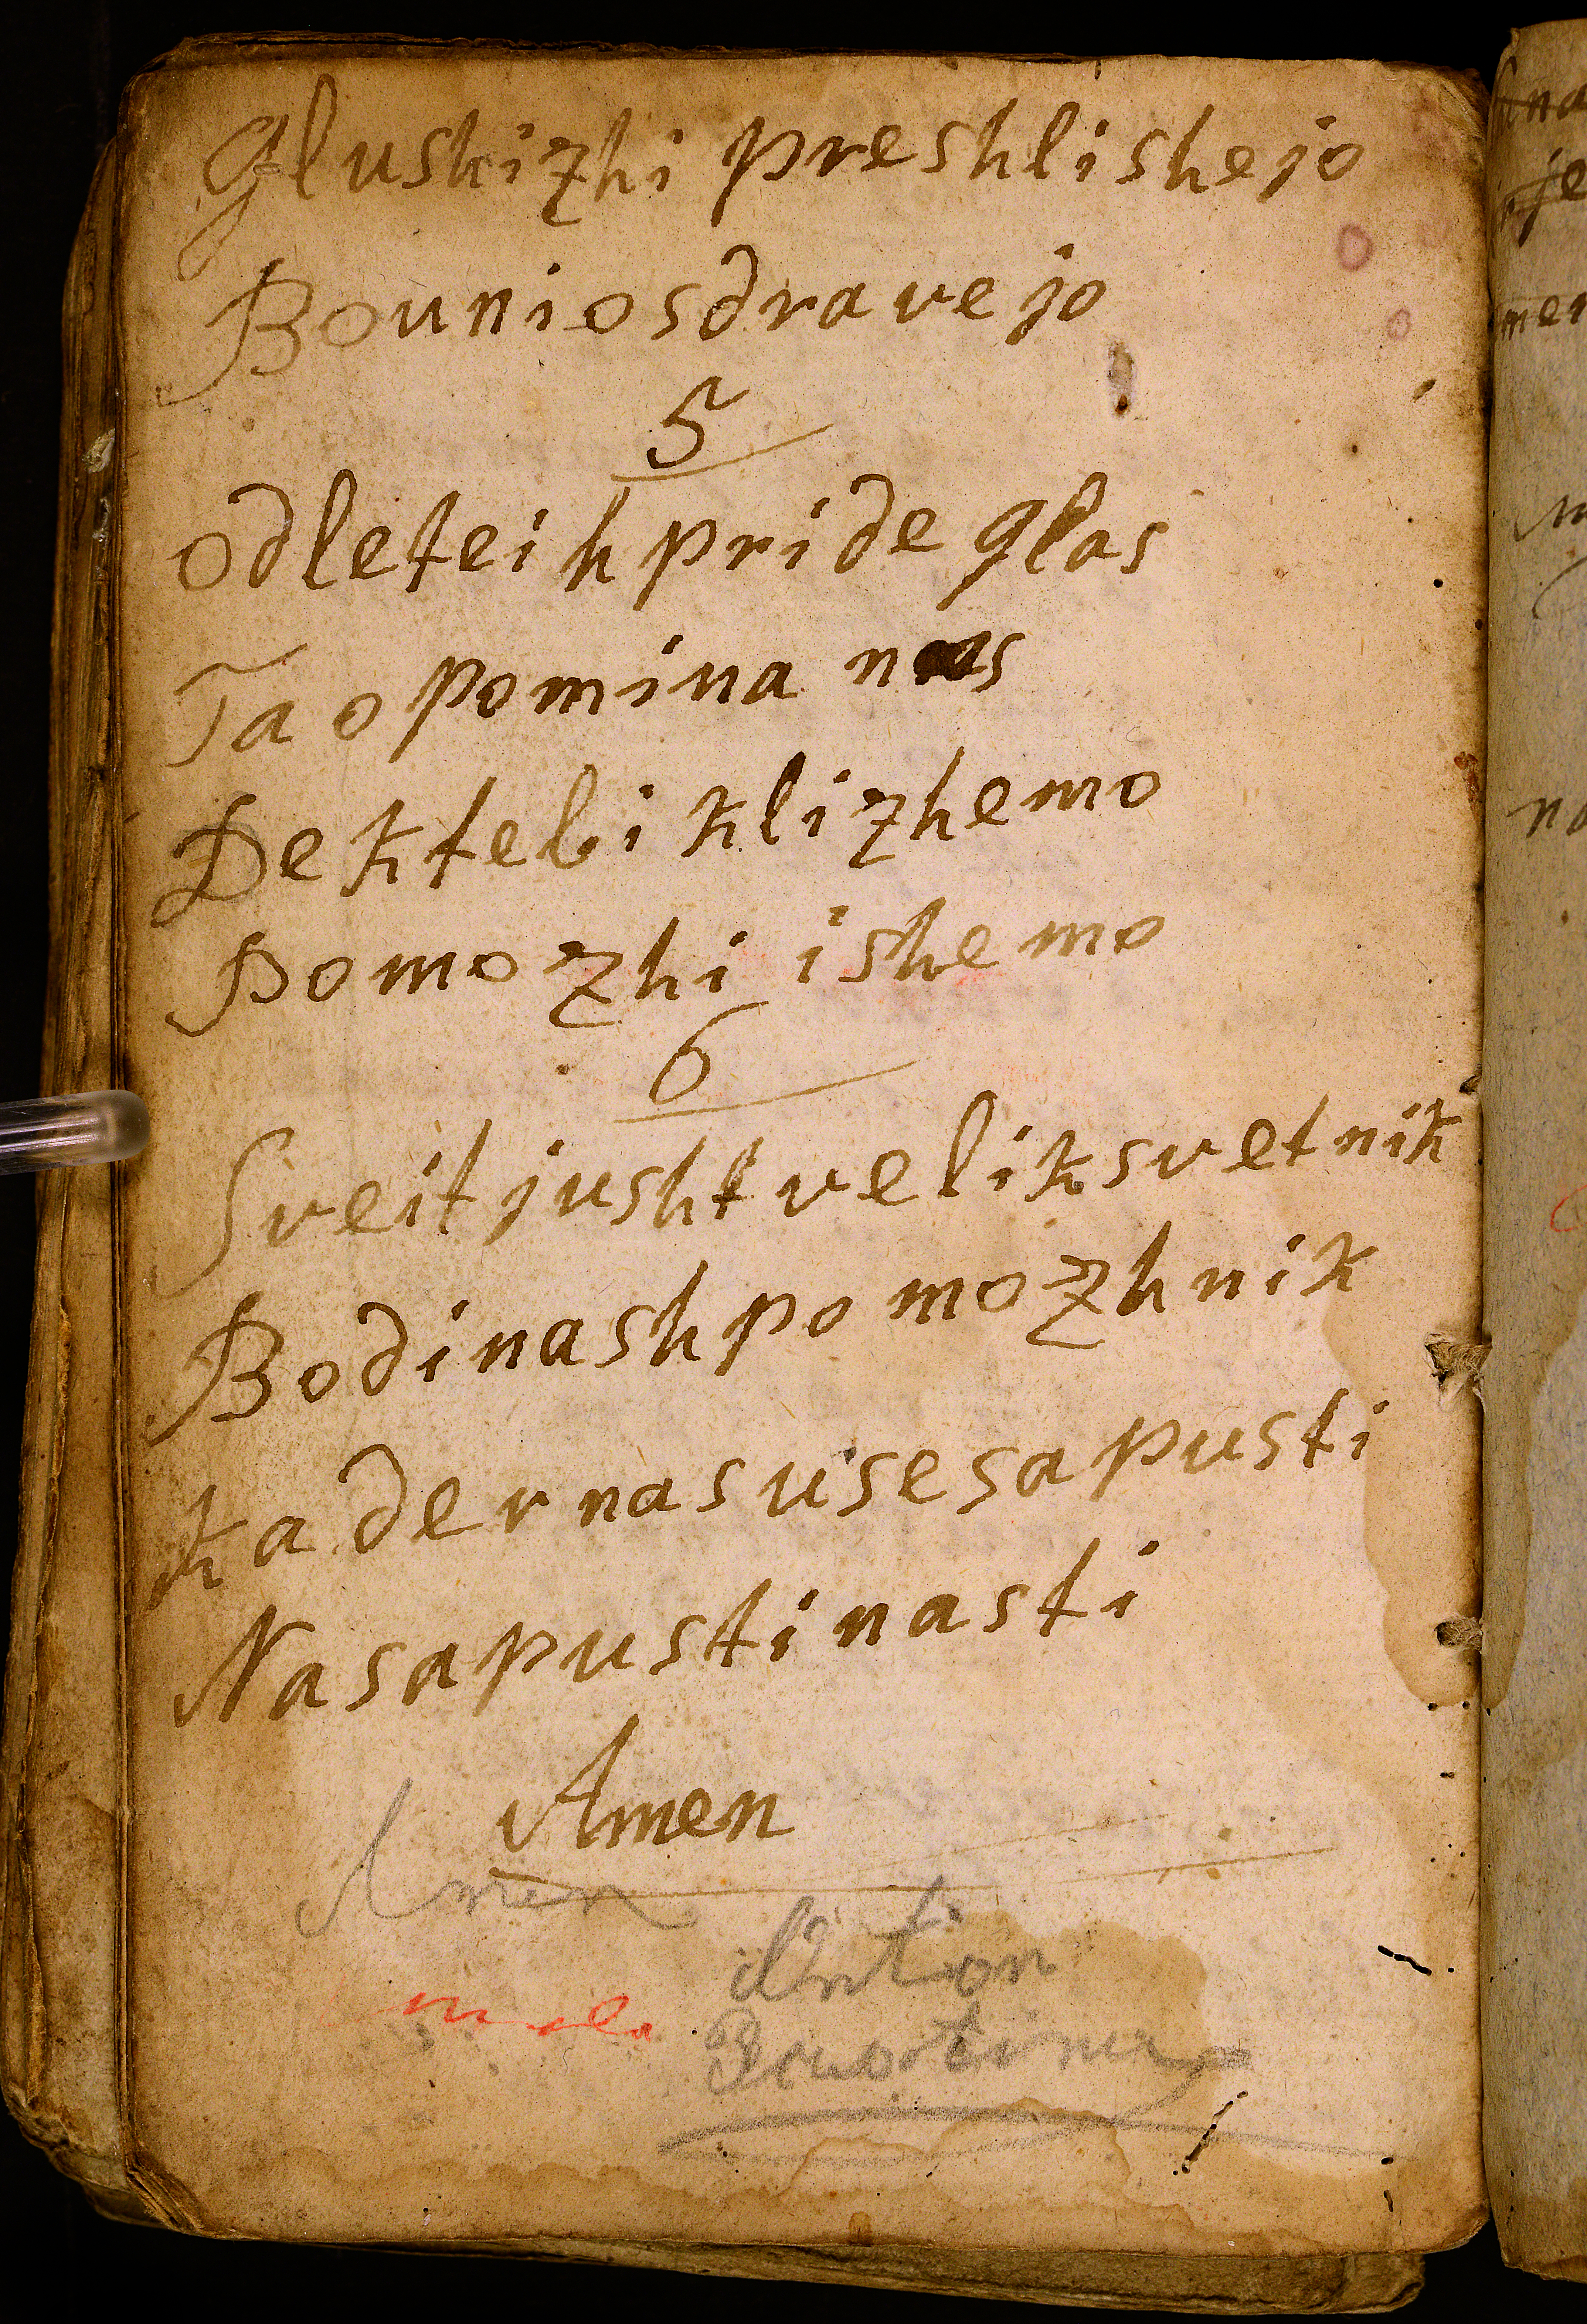 Glushizhi preshlishejo
Bouniosdravejo
5
odleteih pride glas
Ta opomina nas
De ktebi klizhemo
Pomozhi ishemo
6
Sveit jusht velik svetnik
Bodi nash pomozhnik
Kader nas use sapusti
Na sapusti nas ti
Amen
Amen
Anton